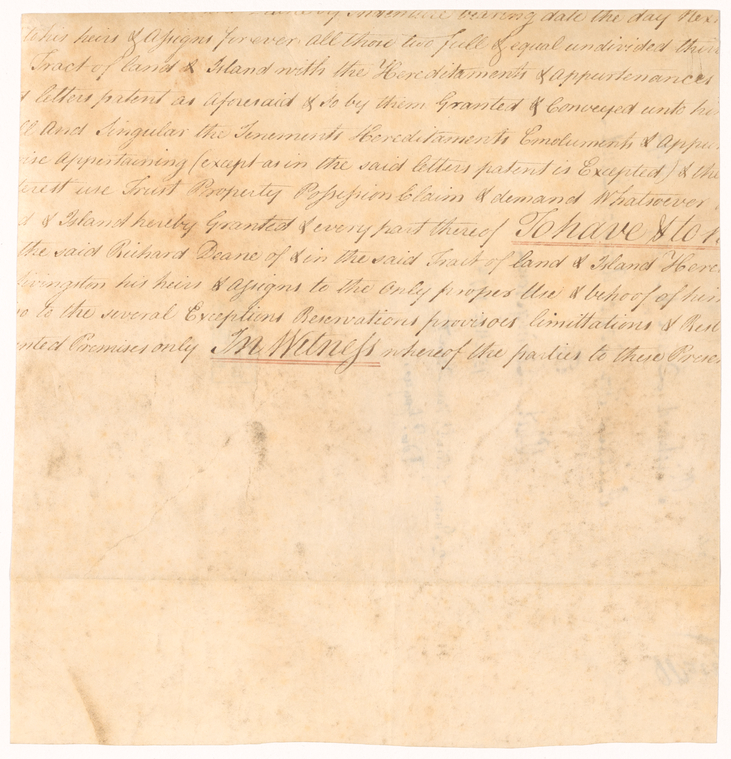 hereby Indenture bearing date the day Next
his heirs & Assigns forever all those two full & equal undivided third
Tract of land & Island with the Hereditaments & appurtenances
letters patent as aforesaid & so by them Granted & Conveyed unto him
and Singular the Tenements Hereditaments Emoluments & appur
ise Appertaining (except as in the said letters patent is Excepted) & the
terest use Trust Property Possession Claim & demand Whatsoever
d & Island hereby Granted & every part thereof To have & to h
the said Richard Deane of & in the said Tract of land & Island Here
Livingston his heirs & assigns to the only proper Use & behoof of him
so to the several Exceptions Reservations provisoes limittations & Rest
nted Premises only In Witness whereof the parties to these Presen